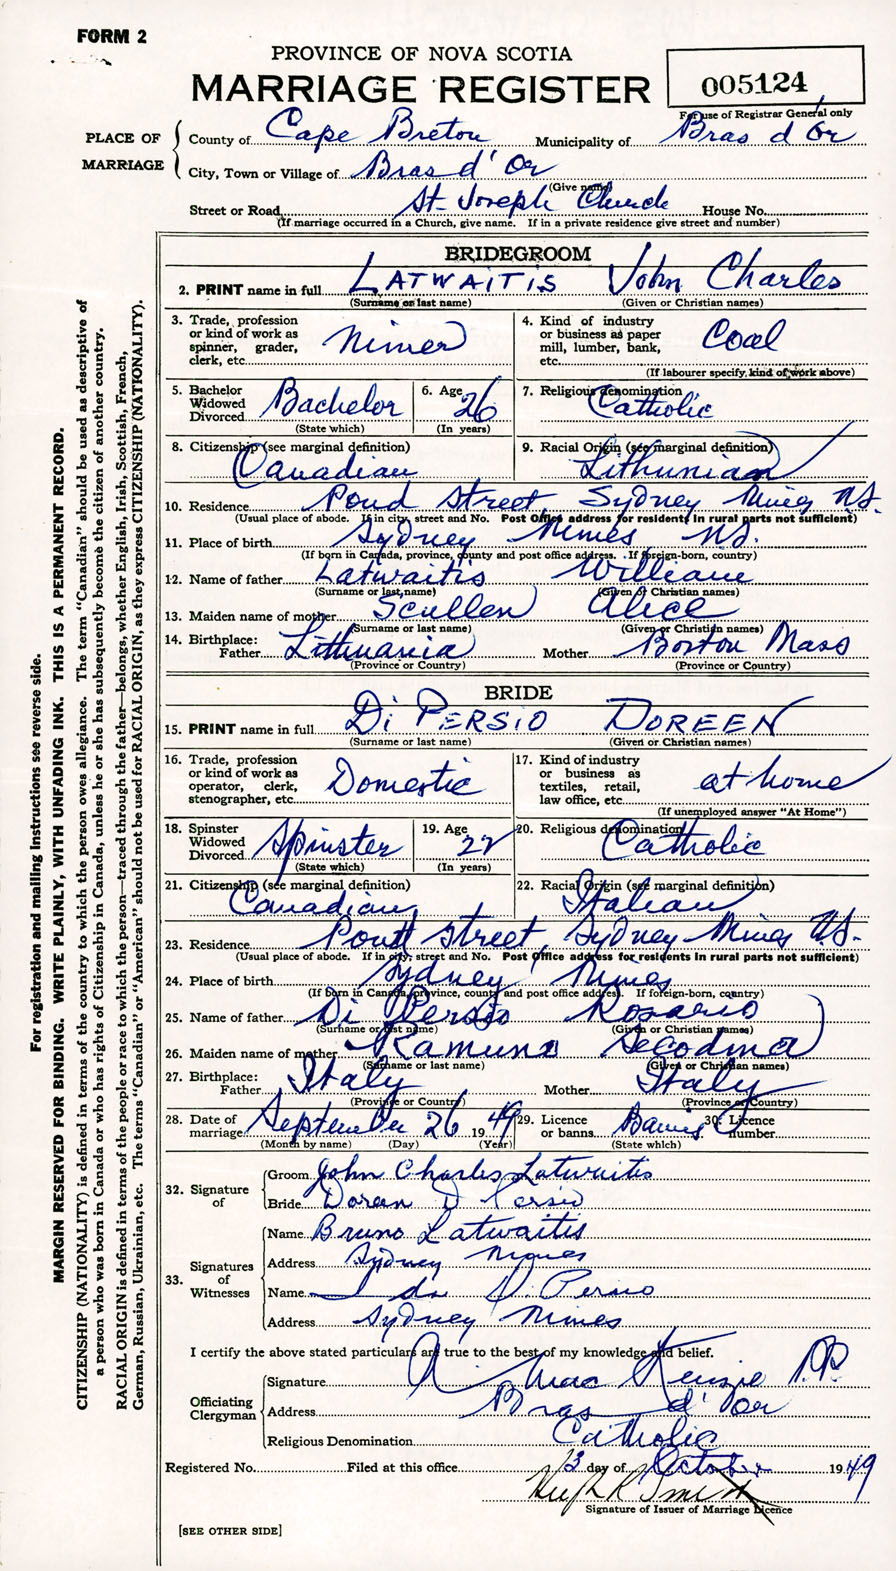 FORM 2
PROVINCE OF NOVA SCOTIA
MARRIAGE REGISTER
005124
For use of Registrar General only
PLACE OF MARRIAGE
County of Cape Breton Municipality of Bras d'Or
City, Town or Village of Bras d'Or
(Give name)
Street or Road St. Joseph Church House No.
(If marriage occurred in a Church, give name. If in a private residence give street and number)
BRIDEGROOM
2. PRINT name in full LATWAITIS John Charles
(Surname or last name) (Given or Christian names)
3. Trade, profession or kind of work as spinner, grader, clerk, etc. Nimer
4. Kind of industry or business as paper mill, lumber, bank, etc. Coal
(If labourer specify kind of work above)
5. Bachelor Widowed Divorced Bachelor
(State which)
6. Age 26
(In years)
7. Religious denomination Catholic
8. Citizenship (see marginal definition) Canadian
9. Racial Origin (see marginal definition) Lithunian
10. Residence Pond Street, Sydney Mines N.S.
(Usual place of abode. If in city, street and No. Post Office address for residents in rural parts not sufficient)
11. Place of birth Sydney Mines N.S.
(If born in Canada, province, county and post office address. If foreign-born, country)
12. Name of father Latwaitis William
(Surname or last name) (Given or Christian names)
13. Maiden name of mother Scullen Alice
(Surname or last name) (Given or Christian names)
14. Birthplace: Father Lithuania Mother Boston Mass
(Province or Country) (Province or Country)
BRIDE
15. PRINT name in full Di PERSIO DOREEN
(Surname or last name) (Given or Christian names)
16. Trade, profession or kind of work as operator, clerk, stenographer, etc. Domestic
17. Kind of industry or business as textiles, retail, law office, etc. at home
(If unemployed answer "At Home")
18. Spinster Widowed Divorced Spinster
(State which)
19. Age 22
(In years)
20. Religious denomination Catholic
21. Citizenship (see marginal definition) Canadian
22. Racial Origin (see marginal definition) Italian
23. Residence Street, Sydney Mines N.S.
(Usual place of abode. If in city, street and No. Post Office address for residents in rural parts not sufficient)
24. Place of birth Sydney Mines
(If born in Canada, province, county and post office address. If foreign-born, country)
25. Name of father Di Persio Rosario
(Surname or last name) (Given or Christian names)
26. Maiden name of mother Ramuno Secodina
(Surname or last name) (Given or Christian names)
27. Birthplace: Father Italy Mother Italy
(Province or Country) (Province or Country)
28. Date of marriage September 26 1949
(Month by name) (Day) (Year)
29. Licence or banns Banns
(State which)
30. Licence number
32. Signature of
Groom John Charles Latwaitis
Bride Doreen D Persio
33. Signatures of Witnesses
Name Bruno Latwaitis
Address Sydney Mines
Name Ida D. Persio
Address Sydney Mines
I certify the above stated particulars are true to the best of my knowledge and belief.
Officiating Clergyman
Signature A. MacKenzie P.P.
Address Bras d'Or
Religious Denomination Catholic
Registered No. Filed at this office 3 day of October 1949
Hugh R Smith
Signature of Issuer of Marriage Licence
[SEE OTHER SIDE]
For registration and mailing instructions see reverse side.
MARGIN RESERVED FOR BINDING. WRITE PLAINLY, WITH UNFADING INK. THIS IS A PERMANENT RECORD.
CITIZENSHIP (NATIONALITY) is defined in terms of the country to which the person owes allegiance. The term "Canadian" should be used as descriptive of
a person who was born in Canada or who has rights of Citizenship in Canada, unless he or she has subsequently become the citizen of another country.
RACIAL ORIGIN is defined in terms of the people or race to which the person—traced through the father—belongs, whether English, Irish, Scottish, French,
German, Russian, Ukrainian, etc. The terms "Canadian" or "American" should not be used for RACIAL ORIGIN, as they express CITIZENSHIP (NATIONALITY).